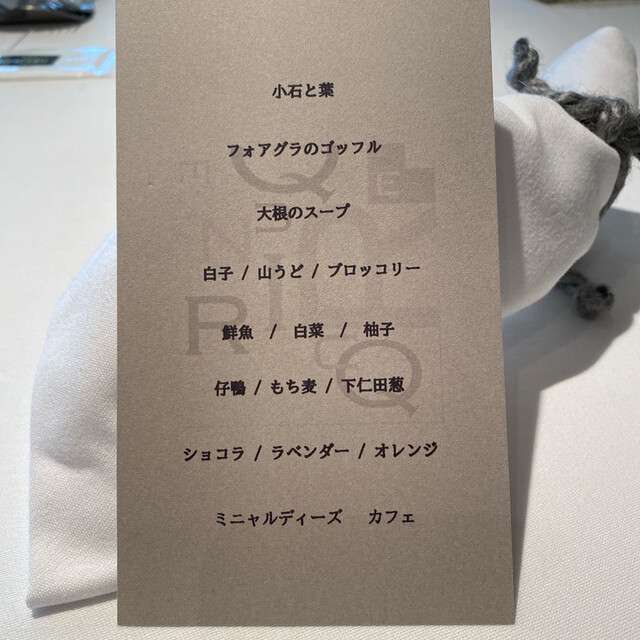 小石と葉
フォアグラのゴッフル
大根のスープ
白子 / 山うど / ブロッコリー
鮮魚 / 白菜 / 柚子
仔鴨 / もち麦 / 下仁田葱
ショコラ / ラベンダー / オレンジ
ミニャルディーズ カフェ